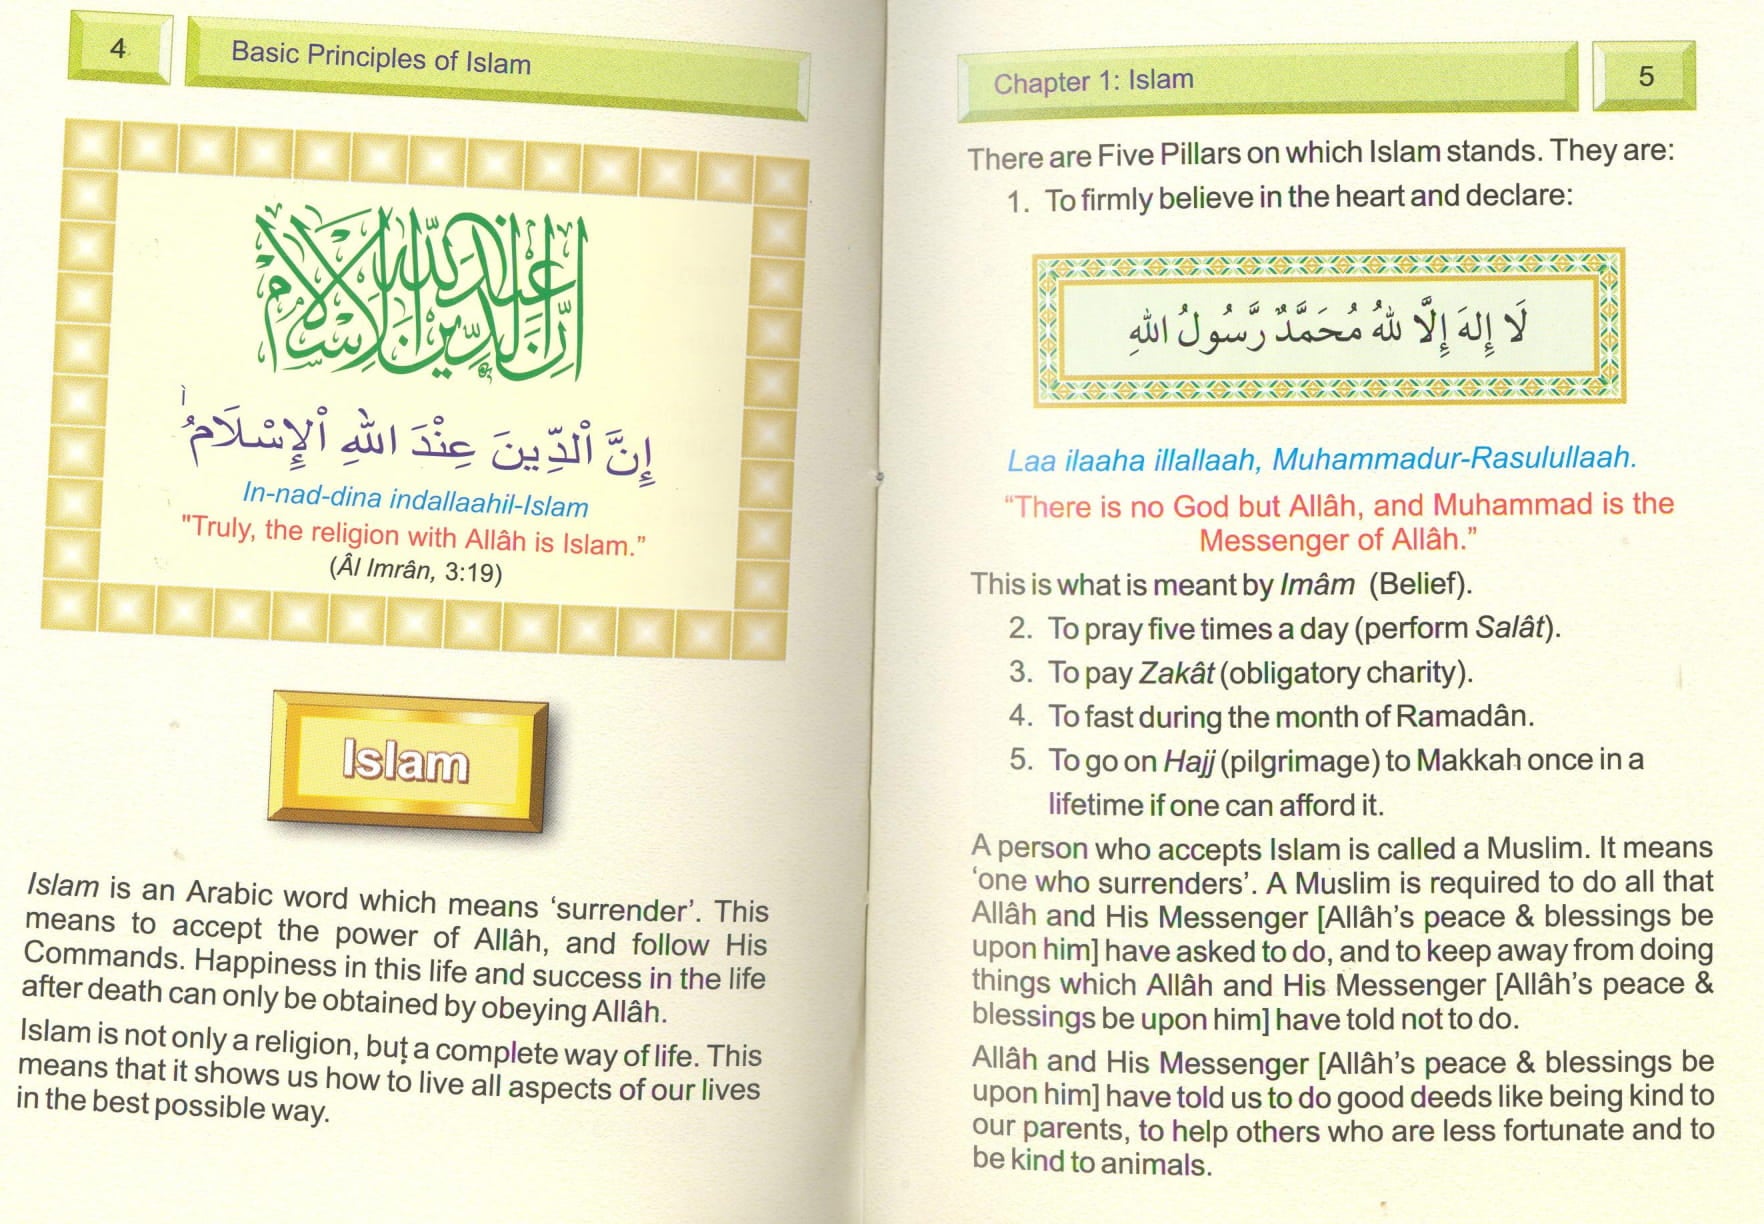 4
Basic Principles of Islam
إن الدين عند الله الإسلام
إِنَّ ٱلدِّينَ عِنْدَ اللهِ ٱلإِسْلَامُ
In-nad-dina indallaahil-Islam
"Truly, the religion with Allâh is Islam.”
(Âl Imrân, 3:19)
Islam
Islam is an Arabic word which means ‘surrender’. This
means to accept the power of Allâh, and follow His
Commands. Happiness in this life and success in the life
after death can only be obtained by obeying Allâh.
Islam is not only a religion, but a complete way of life. This
means that it shows us how to live all aspects of our lives
in the best possible way.
Chapter 1: Islam
5
There are Five Pillars on which Islam stands. They are:
1. To firmly believe in the heart and declare:
لَا إِلهَ إِلَّا للهُ مُحَمَّدٌ رَّسُولُ اللهِ
Laa ilaaha illallaah, Muhammadur-Rasulullaah.
“There is no God but Allâh, and Muhammad is the
Messenger of Allâh.”
This is what is meant by Imâm (Belief).
2. To pray five times a day (perform Salât).
3. To pay Zakât (obligatory charity).
4. To fast during the month of Ramadân.
5. To go on Hajj (pilgrimage) to Makkah once in a
lifetime if one can afford it.
A person who accepts Islam is called a Muslim. It means
‘one who surrenders’. A Muslim is required to do all that
Allâh and His Messenger [Allâh’s peace & blessings be
upon him] have asked to do, and to keep away from doing
things which Allâh and His Messenger [Allâh’s peace &
blessings be upon him] have told not to do.
Allâh and His Messenger [Allâh’s peace & blessings be
upon him] have told us to do good deeds like being kind to
our parents, to help others who are less fortunate and to
be kind to animals.